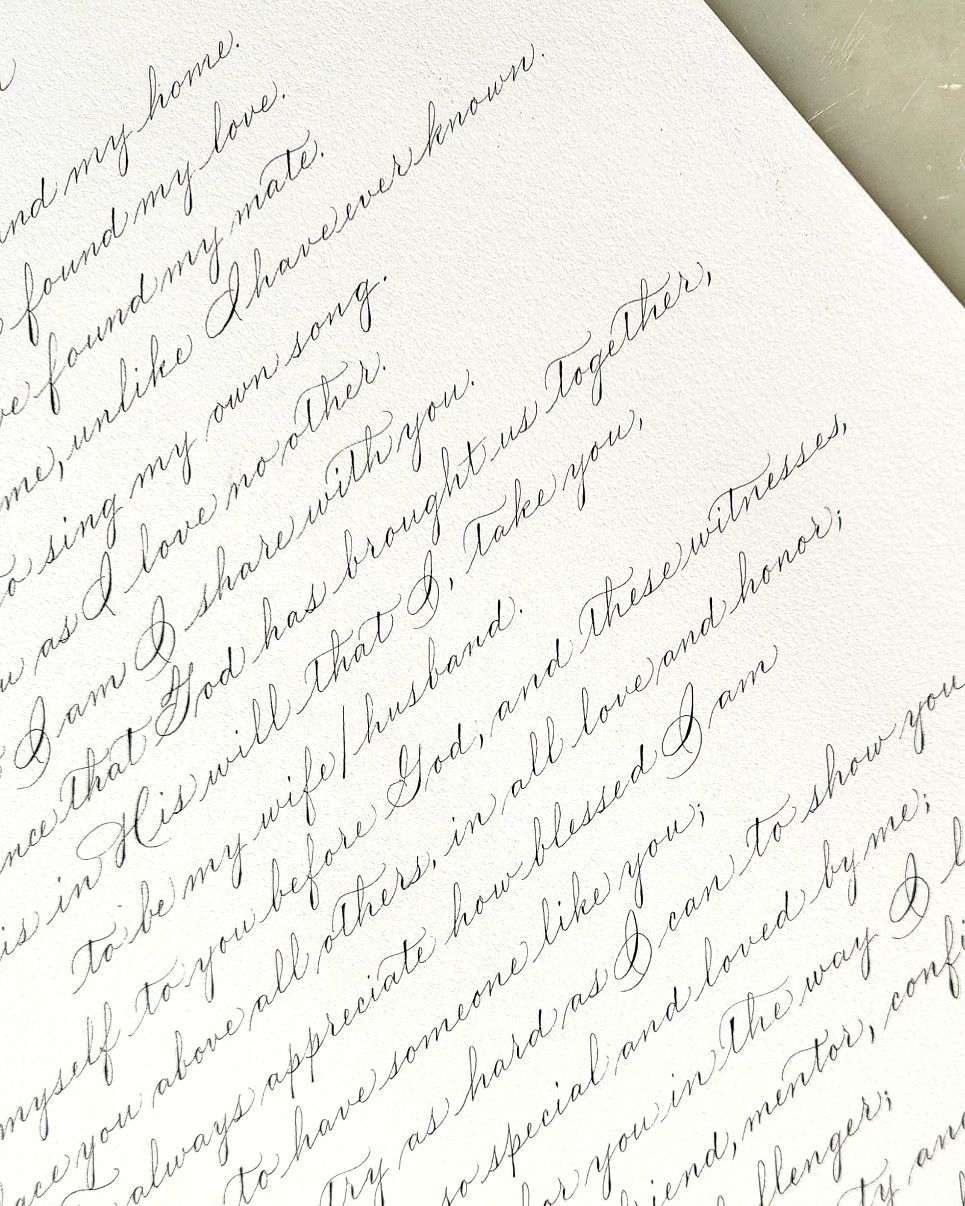 my home.
found my love.
found my mate.
me, unlike I have ever known.
to sing my own song.
as I love no other.
I am I share with you.
that God has brought us together,
is in His will that I, take you,
to be my wife/husband.
myself to you before God, and these witnesses,
you above all others, in all love and honor;
always appreciate how blessed I am
to have someone like you;
Try as hard as I can to show you
so special and loved by me;
you in the way I
mentor,